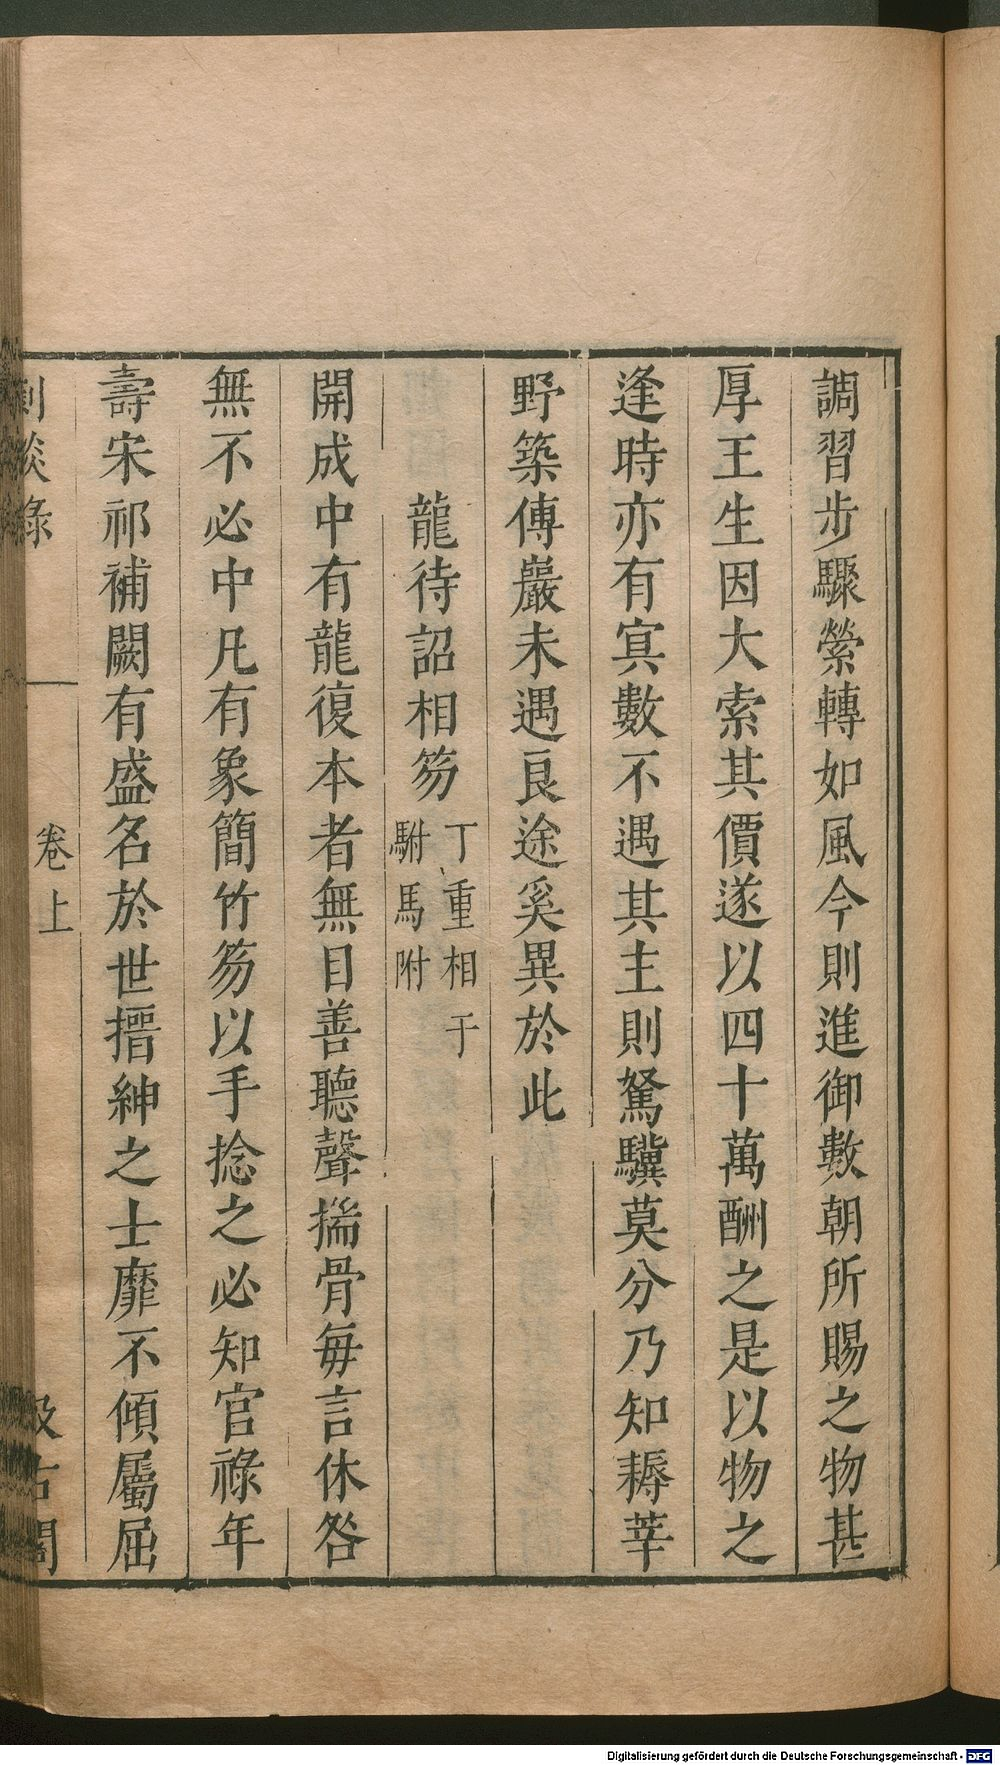 調習步驟縈轉如風今則進御數朝所賜之物甚
厚王生因大索其價遂以四十萬酬之是以物之
逢時亦有冥數不遇其主則駑驥莫分乃知耨莘
野築傅巖未遇良途奚異於此
龍待詔相笏
丁重相于
駙馬附
開成中有龍復本者無目善聽聲揣骨每言休咎
無不必中凡有象簡竹笏以手捻之必知官祿年
壽宋祁補闕有盛名於世搢紳之士靡不傾屬屈
劇談錄
卷上
汲古閣
Digitalisierung gefördert durch die Deutsche Forschungsgemeinschaft - DFG